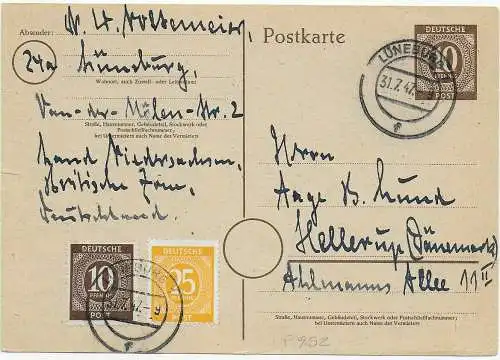 Absender:
24a Lüneburg,
Wohnort, auch Zustell- oder Leitpostamt
Van-der-Mölen-Str. 2
Straße, Hausnummer, Gebäudeteil, Stockwerk oder
Postschließfachnummer,
bei Untermietern auch Name des Vermieters
Land Niedersachsen,
Britische Zone,
Deutschland.
DEUTSCHE
10
PFENNIG
POST
DEUTSCHE
25
PFENNIG
POST
Postkarte
DEUTSCHE
10
PFENNIG
POST
LÜNEBURG
31.7.47
Herrn
Aage B. Lund
Hellerup (Dänemark)
Ahlmanns Allee 11 II
Straße, Hausnummer, Gebäudeteil, Stockwerk oder Postschließfachnummer,
bei Untermietern auch Name des Vermieters
P 952